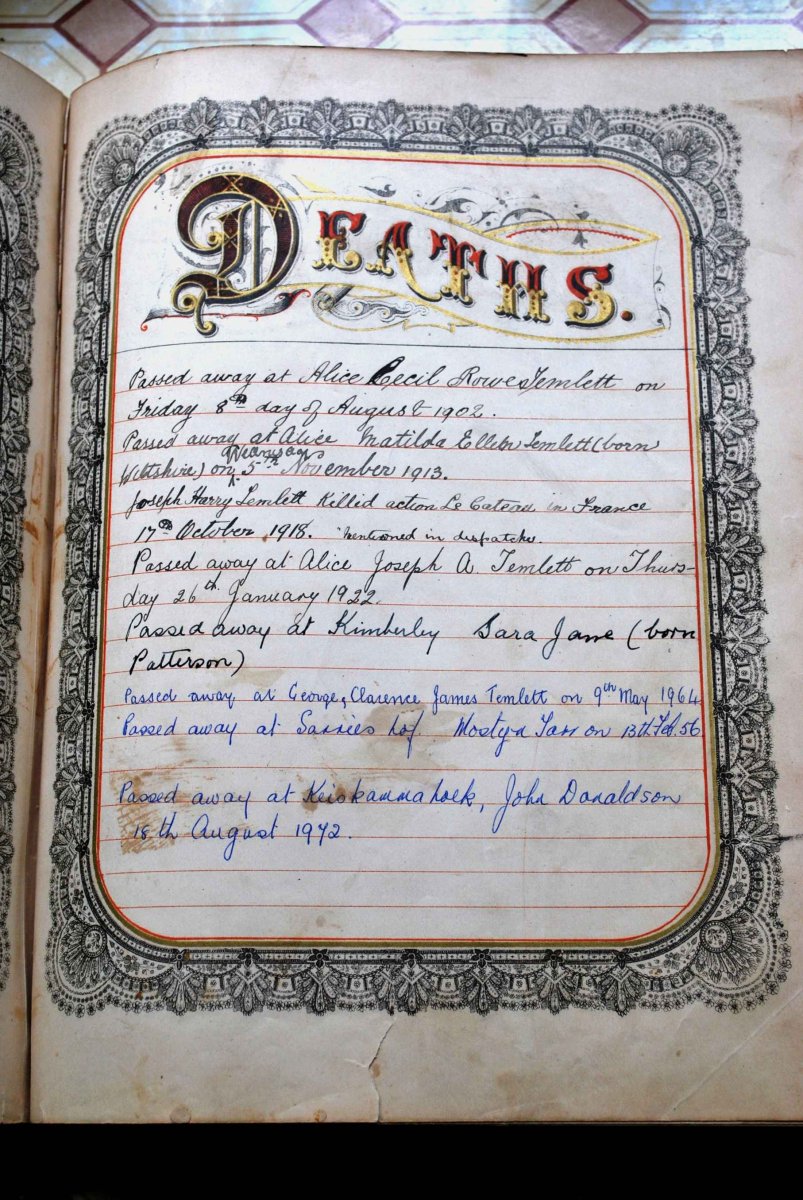 DEATHS.
Passed away at Alice Cecil Rowe Temlett on
Friday 8th day of August 1902.
Passed away at Alice Matilda Ellen Temlett (born
Wiltshire) on 5th November 1913.
Joseph Harry Temlett Killid action Le Cateau in France
17th October 1918. Mentioned in despatches.
Passed away at Alice Joseph A. Temlett on Thurs-
day 26th January 1922.
Passed away at Kimberley Sara Jane (born
Patterson)
Passed away at George, Clarence James Temlett on 9th May 1964
Passed away at Mostyn on 13th Feb. 56
Passed away at Keiskammahoek, John Donaldson
18th August 1972.